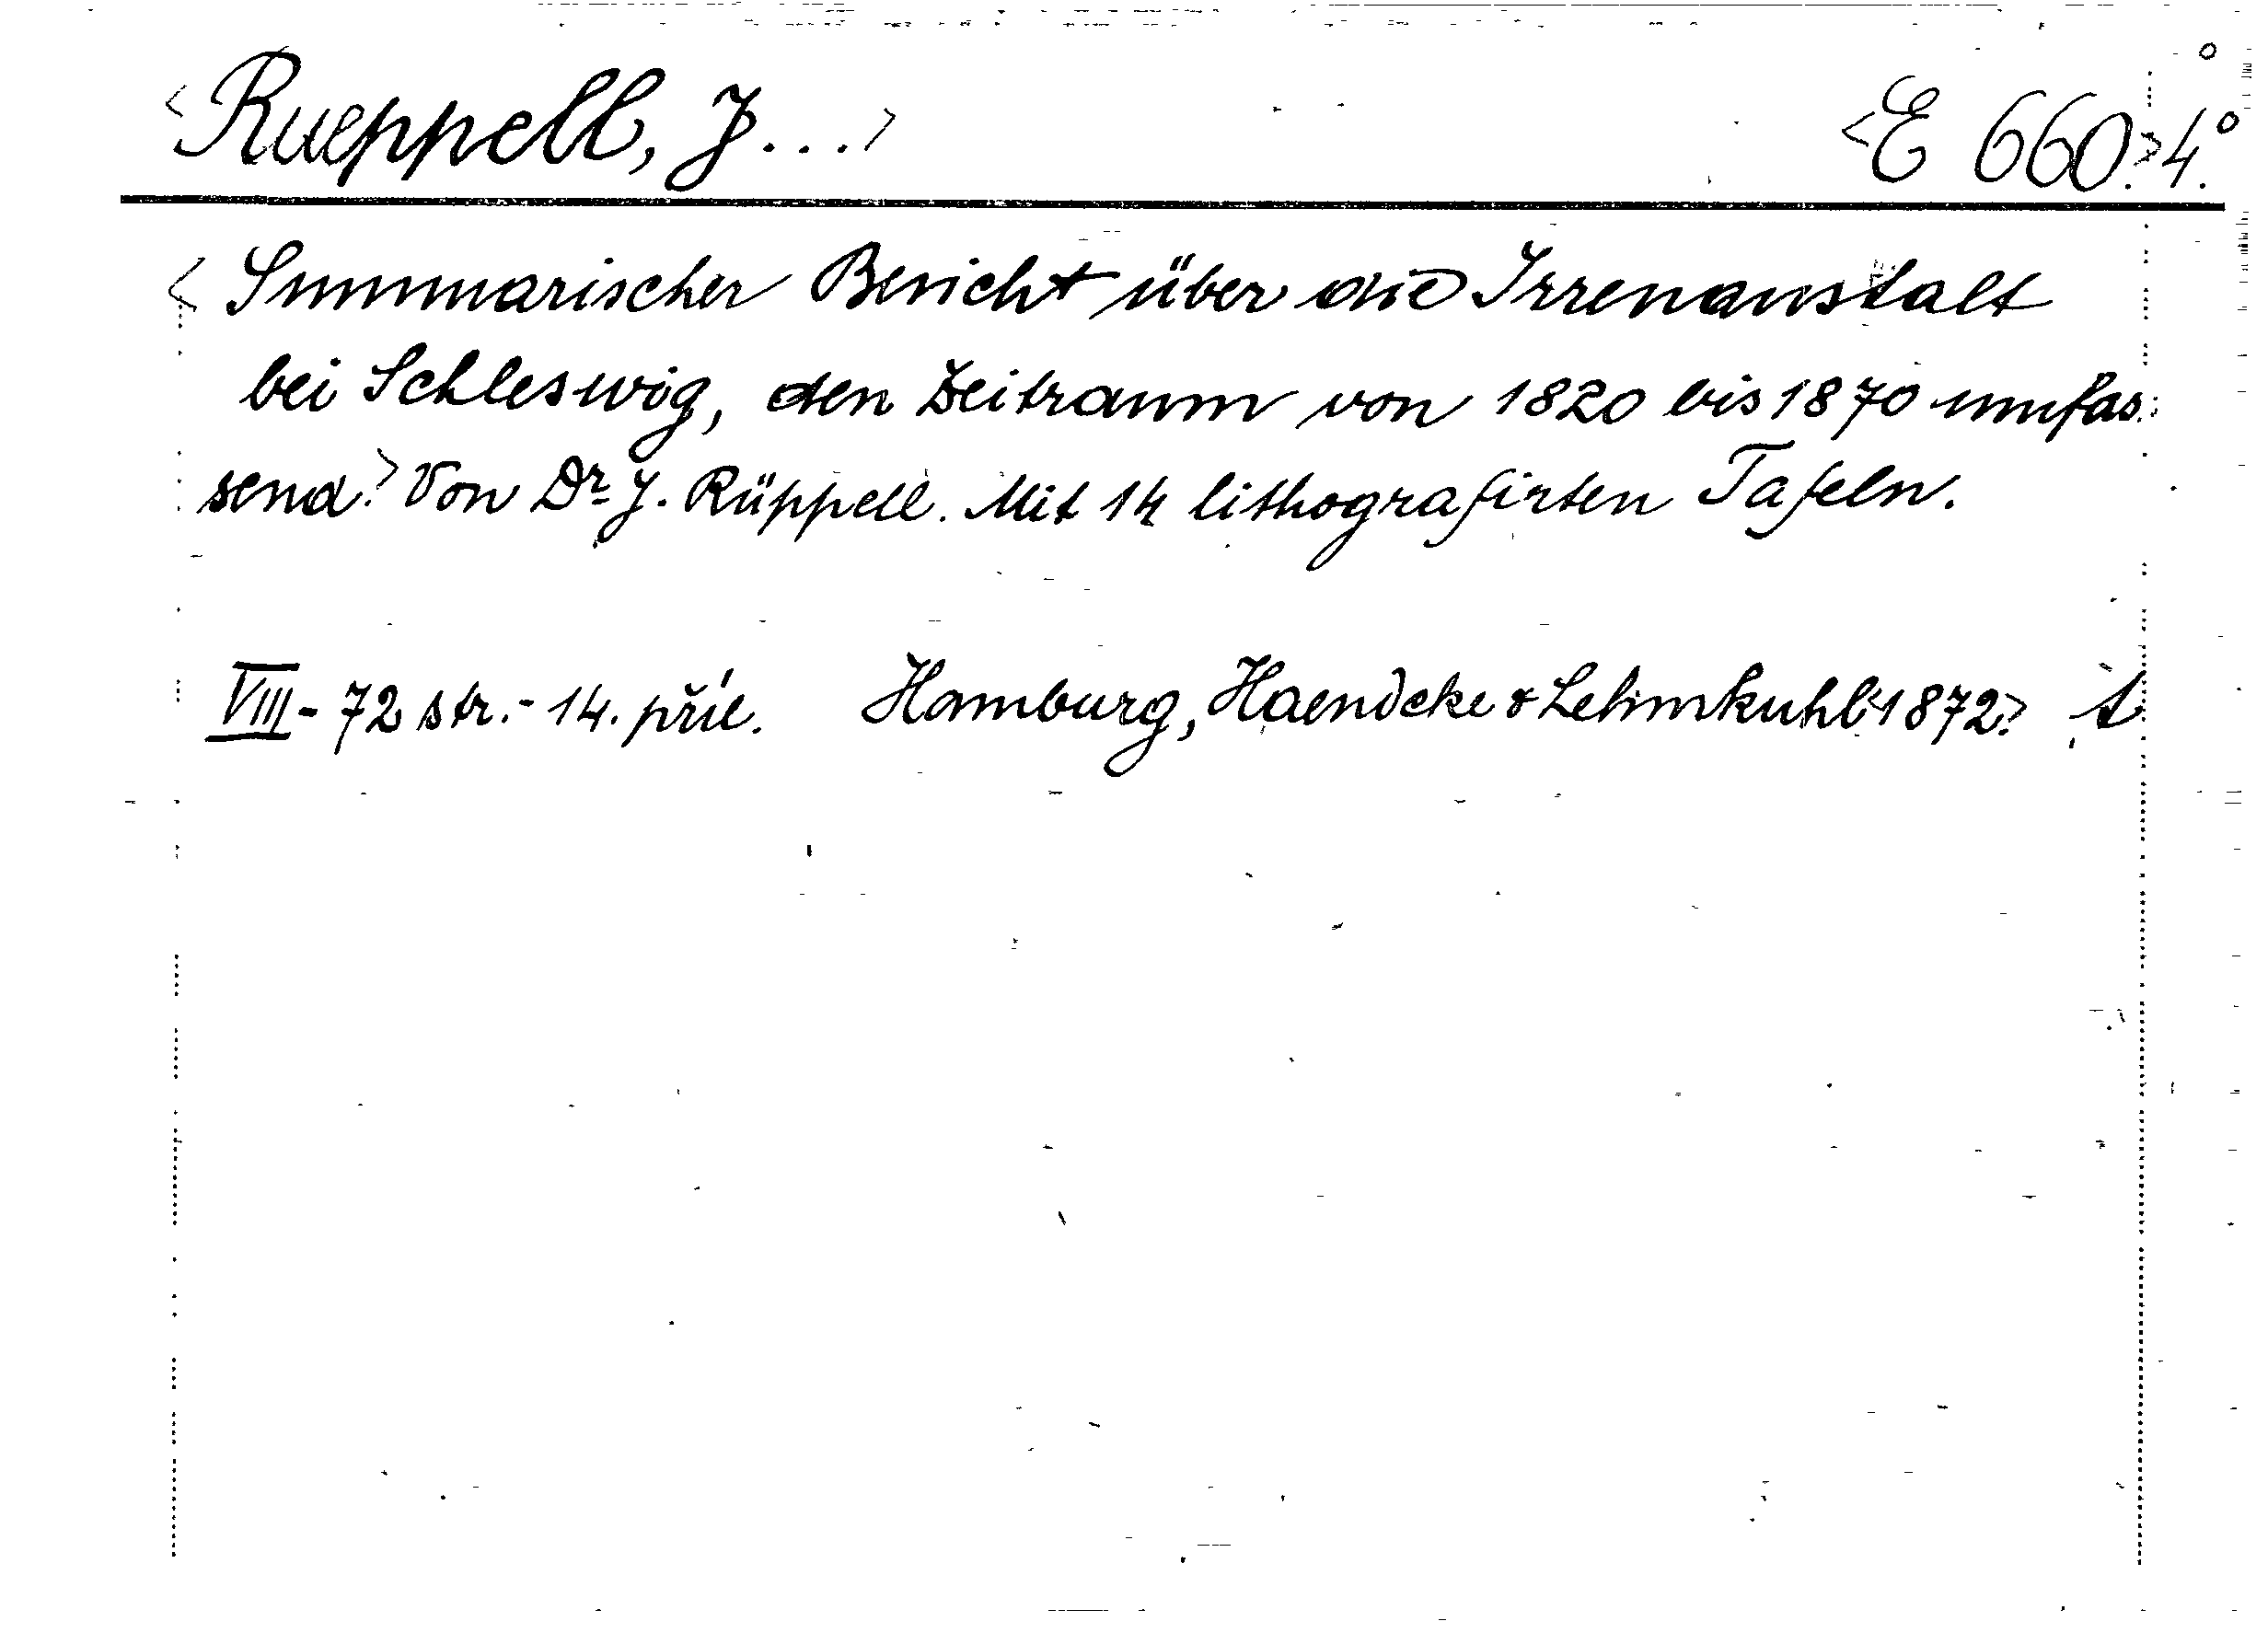 <Rueppell, J...> <E 660.>4.°
<Summarischer Bericht über die Irrenanstalt
bei Schleswig, den Zeitraum von 1820 bis 1870 umfas
send.> Von Dr. J. Rüppell. Mit 14 lithografirten Tafeln.
VIII - 72 str. - 14. příl. Hamburg, Haendcke & Lehmkuhl 1872.>